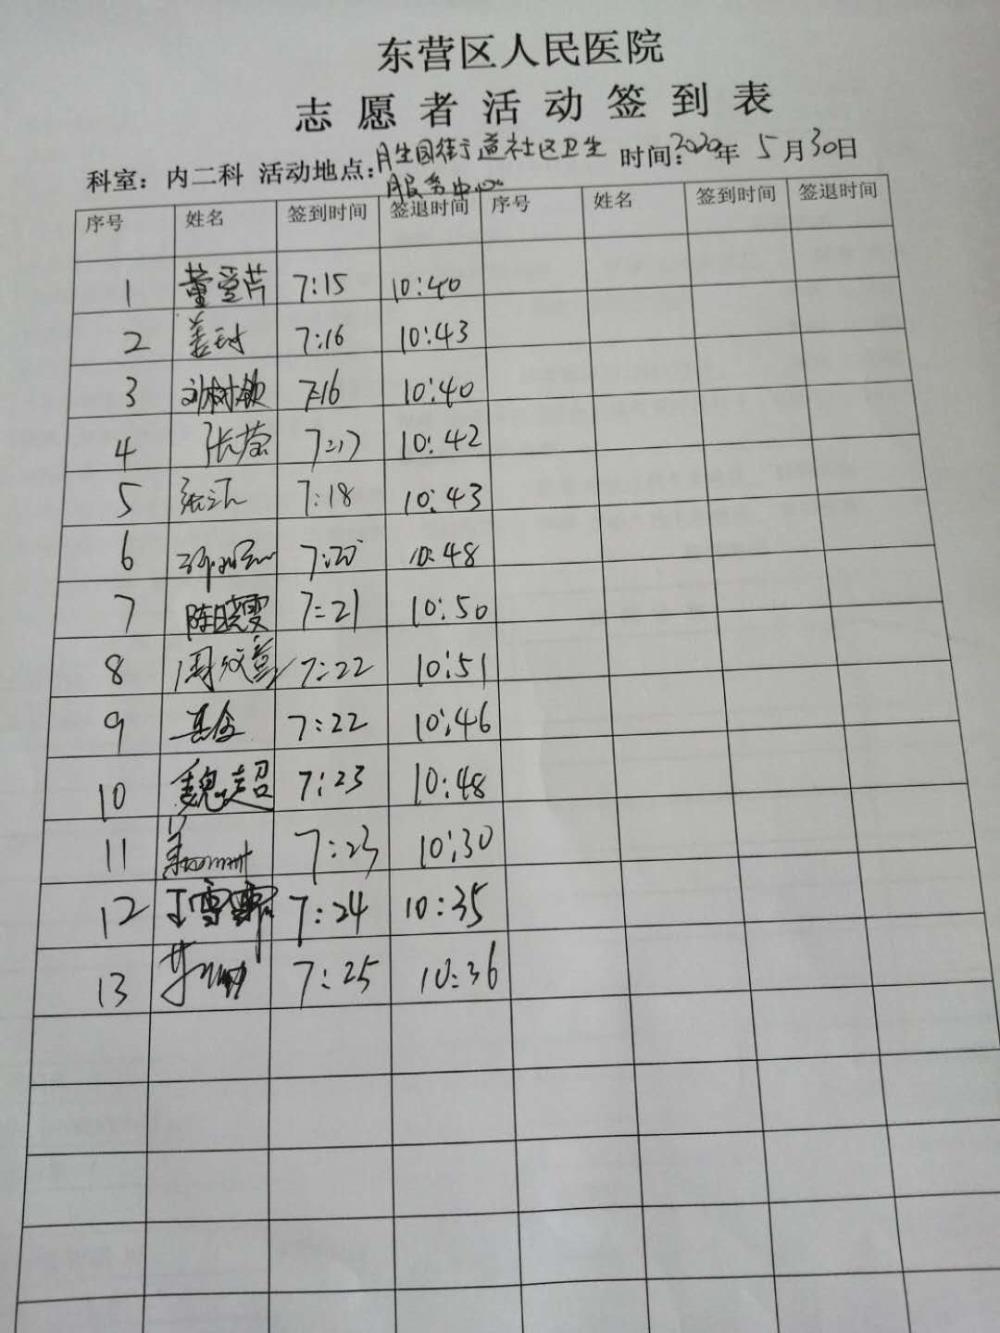 东营区人民医院
志愿者活动签到表
科室：内二科 活动地点：胜园街道社区卫生服务中心 时间：2020年 5月30日
序号 姓名 签到时间 签退时间 序号 姓名 签到时间 签退时间
1 董爱芹 7:15 10:40
2 7:16 10:43
3 刘树敏 7:16 10:40
4 张莹 7:17 10:42
5 7:18 10:43
6 7:20 10:48
7 陈晓雯 7:21 10:50
8 7:22 10:51
9 7:22 10:46
10 魏超 7:23 10:48
11 7:23 10:30
12 7:24 10:35
13 7:25 10:36